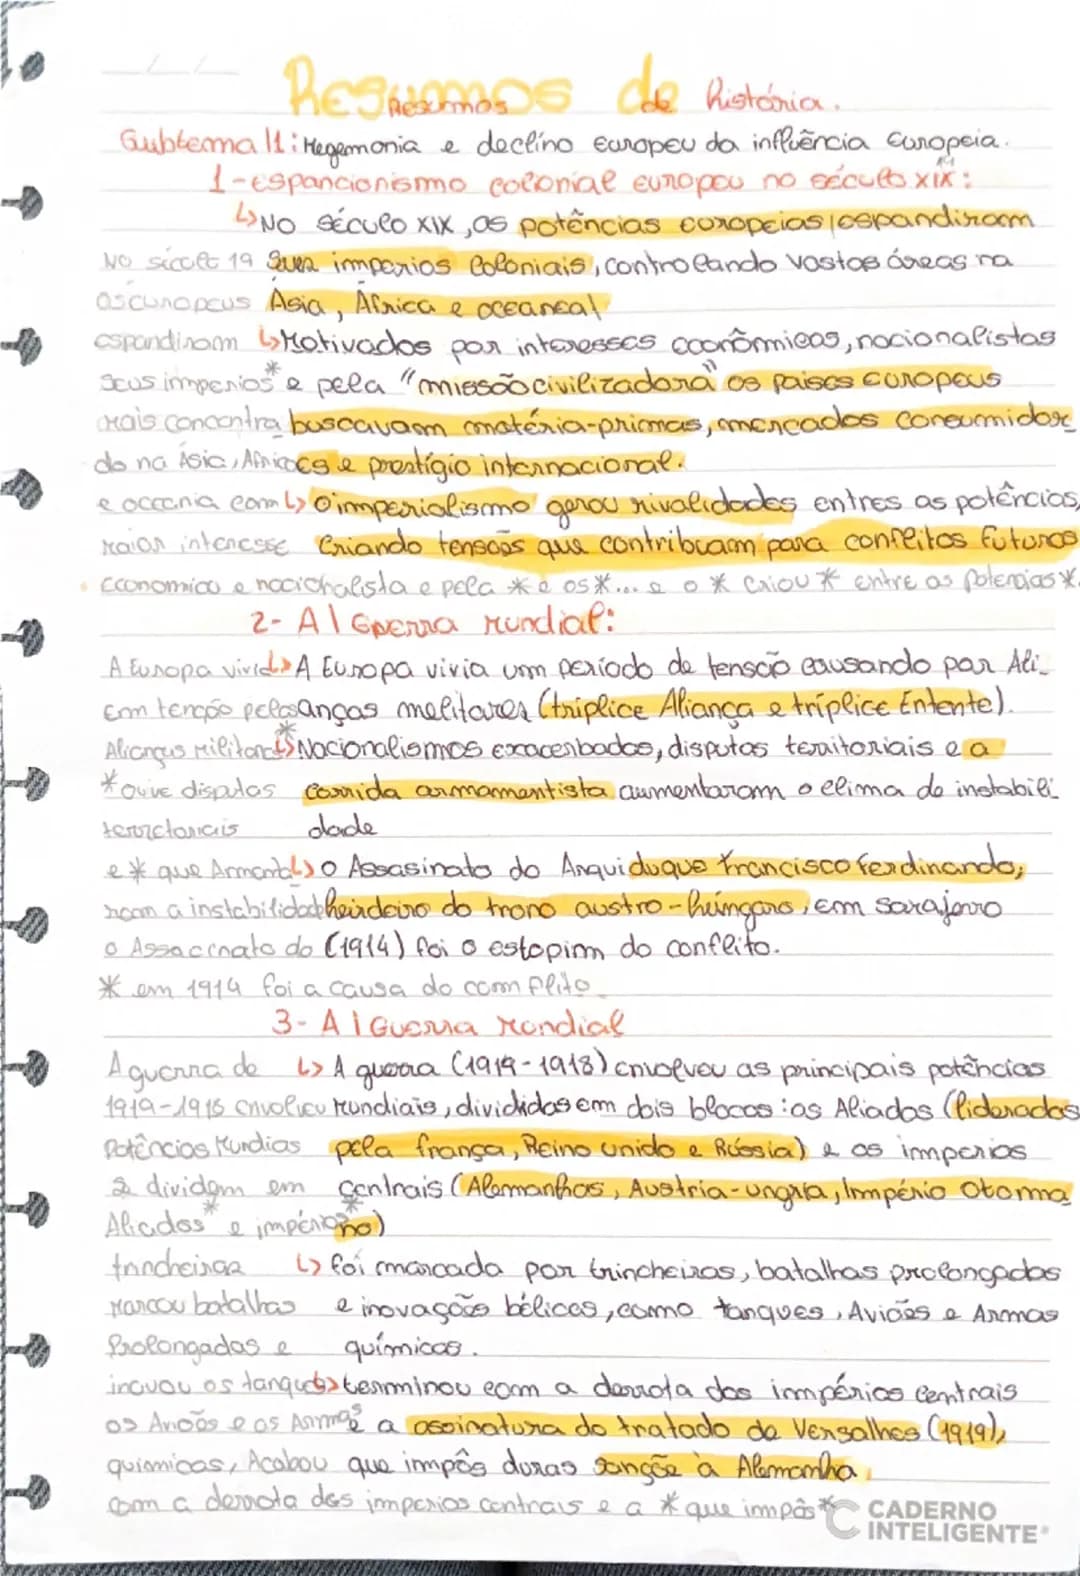 Resumos de
Resumos de história.
Subtema I1: Hegemonia e declíno Europeu da influência Europeia.
1-espancionismo colonial europeu no século xix:
↳No século XIX, as potências europeias espandiram
No sécult 19 Suas imperios Coloniais, controlando vastas áreas na
os europeus Ásia, África e oceaneal
espandiram ↳Motivados por interesses econômicos, nacionalistas
Seus imperios* e pela "missão civilizadora" os paises europeus
mais concentra buscavam matéria-primas, mercados consumidor
do na Ásia, África es e prestígio internacional.
e oceania com ↳ O imperialismo gerou rivalidades entres as potências,
maior interesse Criando tensões que contribuam para conflitos futuros
Economico e nacionalista e pela * e os *... e o * criou * entre as potencias *.
2- A I Guerra mundial:
A Europa vivid ↳ A Europa vivia um período de tensão causando por Ali_
Em tenção pelas anças melitares (tríplice Aliança e tríplice Entente).
Alianças Militares* ↳ Nacionalismos exacerbados, disputas territoriais e a
* ouve disputas corrida armamentista aumentaram o clima de instabili
terrictoriais dade
e * que Armental ↳ o Assasinato do Arquiduque francisco ferdinando,
ram a instabilidade heirdeiro do trono austro-húngaro, em Sarajevo
o Assaccnato do (1914) foi o estopim do conflito.
* em 1914 foi a causa do comflito
3- A I Guerra mondial
A guerra de ↳ A guerra (1914-1918) envolveu as principais potências
1919-1918 envolveu mundiais, divididas em dois blocos: os Aliados (lideradas
Potências Mundias pela frança, Reino unido e Rússia) e os imperios
se dividem em centrais (Alemanhas, Austria-ungria, Império Otoma
Aliados* e impérios* no)
trincheiras ↳ foi marcada por trincheiras, batalhas prolongadas
Marcou batalhas e inovações bélicas, como tanques, Aviões e Armas
Prolongadas e químicas.
inovou os tanques ↳ terminou com a derrota dos impérios centrais
os Avioes e os Armas e a assinatura do tratado de Versalhes (1919),
quimicas, Acabou que impôs duras sangõe à Alemanha.
com a derrota dos imperios centrais e a * que impôs *
CADERNO
INTELIGENTE®